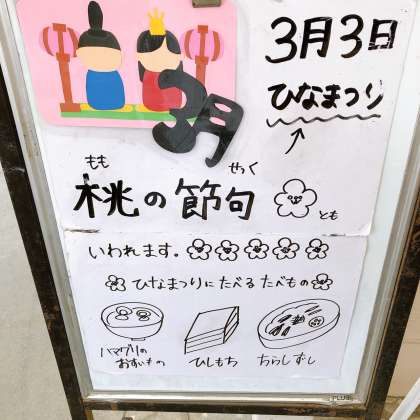 3月3日
ひなまつり
3月
もも せっく
桃の節句 とも
いわれます。
ひなまつりに たべる たべもの
ハマグリの
おすいもの
ひしもち
ちらしずし
PLUS